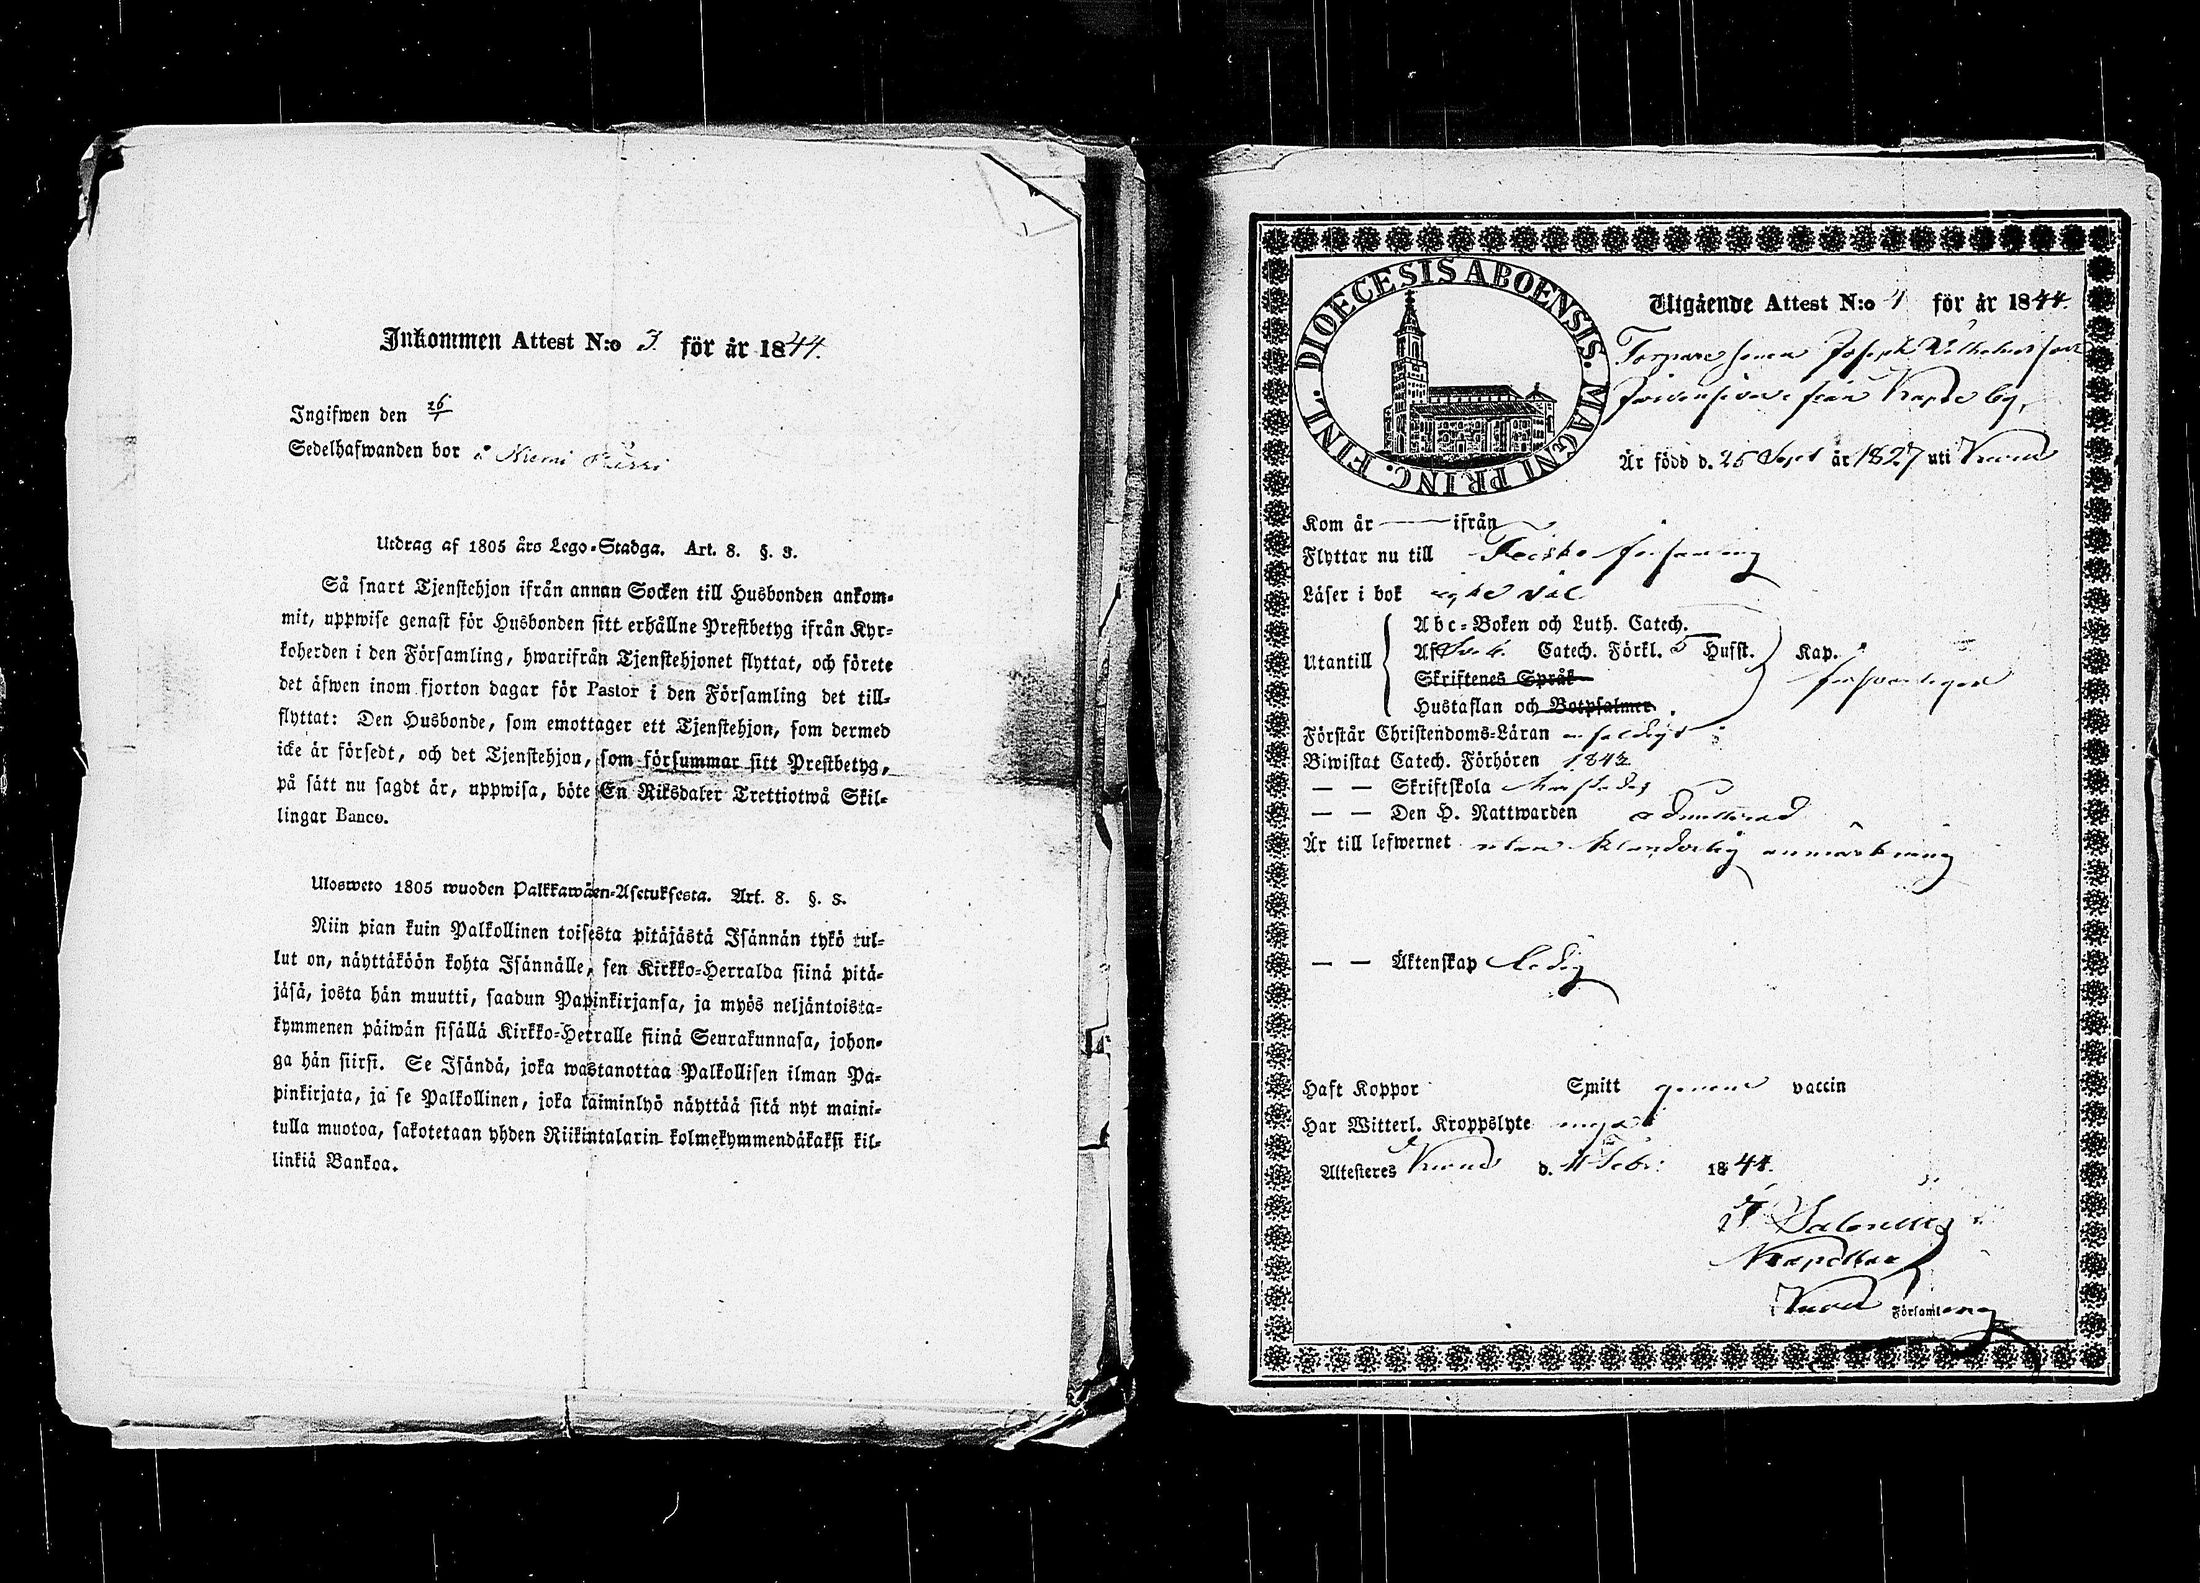 Inkommen Attest N:o 3. för år 1844.
Ingifwen den 26/
Sedelhafwanden bor å Niemi
Utdrag af 1805 års Lego-Stadga. Art. 8. §. 3.
Så snart Tjenstehjon ifrån annan Socken till Husbonden ankom-
mit, uppwise genast för Husbonden sitt erhållne Prestbetyg ifrån Kyr-
koherden i den Församling, hwarifrån Tjenstehjonet flyttat, och förete
det äfwen inom fjorton dagar för Pastor i den Församling det till-
flyttat: Den Husbonde, som emottager ett Tjenstehjon, som dermed
icke är försedt, och det Tjenstehjon, som försummar sitt Prestbetyg,
på sätt nu sagdt är, uppwisa, böte En Riksdaler Trettiotwå Skil-
lingar Banco.
Ulosweto 1805 wuoden Palkkawäen-Asetuksesta. Art. 8. §. 3.
Niin pian kuin Palkollinen toisesta pitäjästä Isännän tykö tul-
lut on, näyttäköön kohta Isännälle, sen Kirkko-Herralda siinä pitä-
jäsä, josta hän muutti, saadun Papinkirjansa, ja myös neljäntoista-
kymmenen päiwän sisällä Kirkko-Herralle siinä Seurakunnasa, johon-
ga hän siirsi. Se Isändä, joka wastanottaa Palkollisen ilman Pa-
pinkirjata, ja se Palkollinen, joka laiminlyö näyttää sitä nyt maini-
tulla muotoa, sakotetaan yhden Riikintalarin kolmekymmendäkaksi kil-
linkiä Bankoa.
DIOECESIS ABOENSIS. MAGNI PRINC. FINL.
Utgående Attest N:o 4 för år 1844.
Torparesonen Joseph Wilhelmsson
från by,
Är född d. 25 Sept år 1827 uti
Kom år — ifrån —
Flyttar nu till församling
Läser i bok wäl
Utantill
Abc-Boken och Luth. Catech.
Af Catech. Förkl. 5 Husst.
Skriftenes Språk
Hustaflan och Botpsalmer
Kap.
försvarligen
Förstår Christendoms-Läran enfaldigt
Biwistat Catech. Förhören 1843
— — Skriftskola
— — Den H. Nattwarden admitterad
Är till lefwernet utan klanderlig anmärkning
— — Äktenskap ledig
Haft Koppor Smitt genom vaccin
Har Witterl. Kroppslyte inga
Attesteres d. Febr: 1844.
Kapellan
i Församling